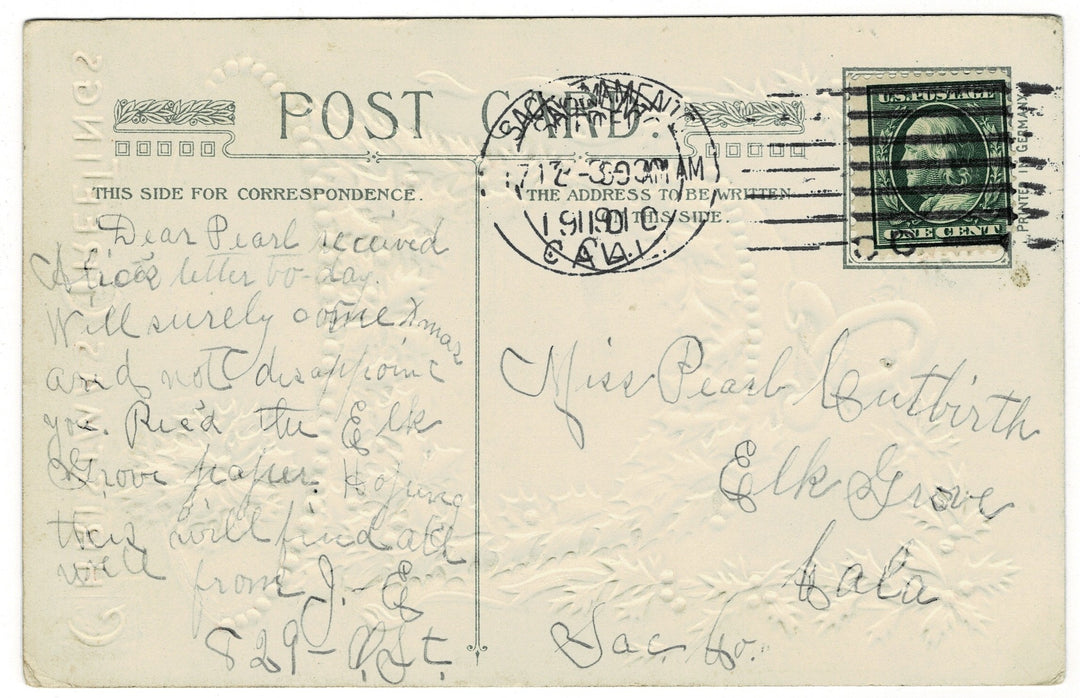 POST CARD.
THIS SIDE FOR CORRESPONDENCE.
THE ADDRESS TO BE WRITTEN
THIS SIDE.
SACRAMENTO
CAL.
U.S. POSTAGE
ONE CENT
PRINTED IN GERMANY
Dear Pearl received
A nice letter to-day.
Will surely come Xmas
and not disappoint
you. Rec'd the Elk
Grove paper. Hoping
this will find all
well
from J. - E
829 - P. St.
Miss Pearl Cutbirth
Elk Grove
Cala
Sac. Co.